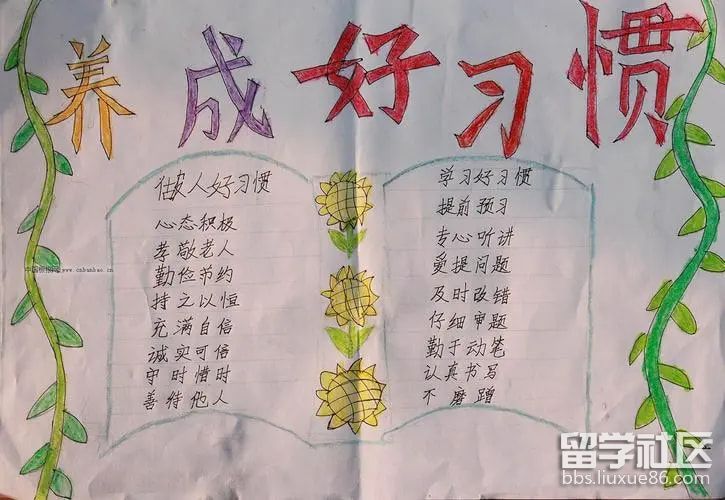 养成好习惯
做人好习惯
心态积极
孝敬老人
勤俭节约
持之以恒
充满自信
诚实可信
守时惜时
善待他人
学习好习惯
提前预习
专心听讲
爱提问题
及时改错
仔细审题
勤于动笔
认真书写
不磨蹭
www.cnbanbao.cn
留学社区
bbs.liuxue86.com